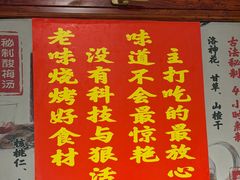 秘制酸梅汤
核桃仁、
老味烧烤好食材
没有科技与狠活
味道不会最惊艳
主打吃的最放心
洛神花、甘草、山楂干
古法秘制